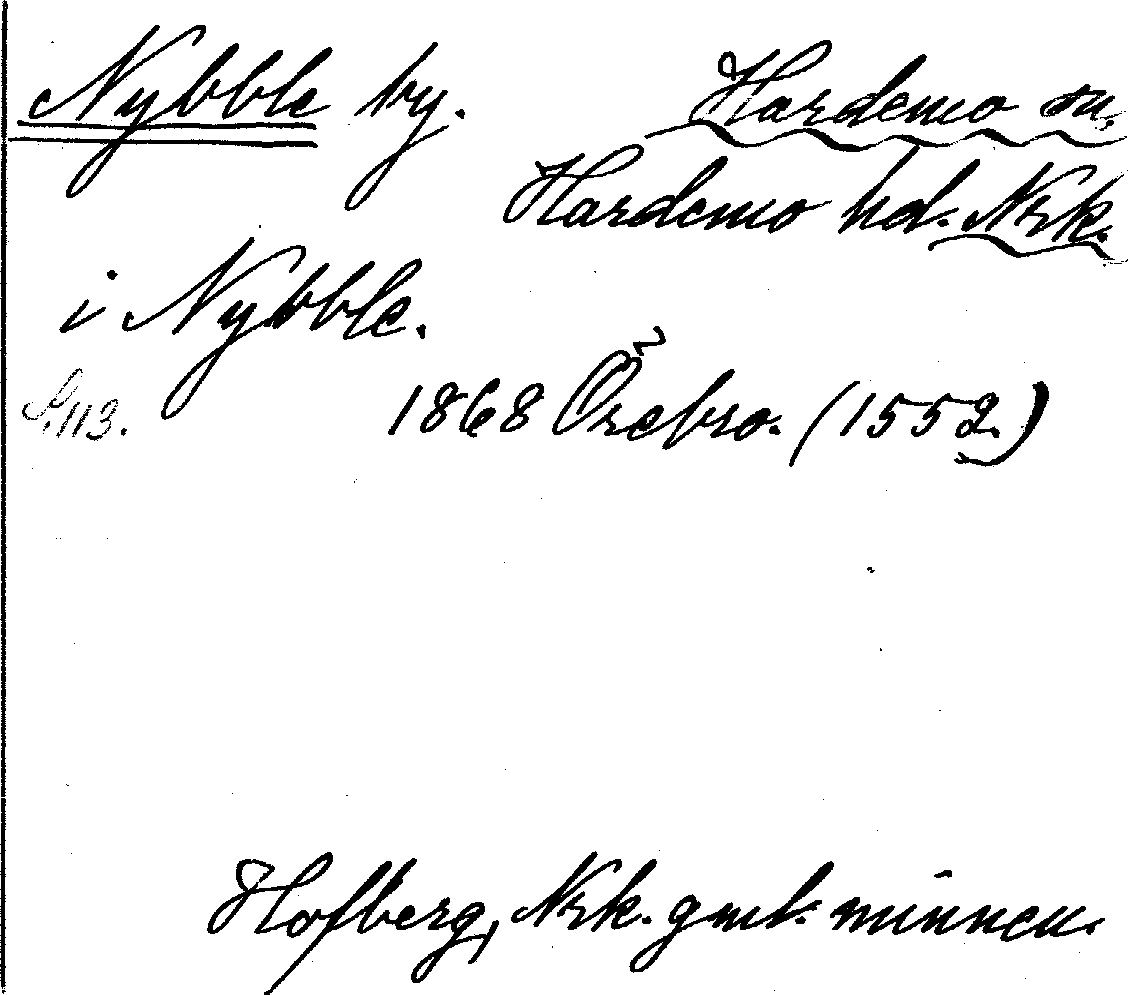 Nybble by. Hardemo sn.
Hardemo hd. Nrk.
i Nybble.
S. 113. 1868 Örebro. (1552.)
Hofberg, Nrk. gml. minnen.